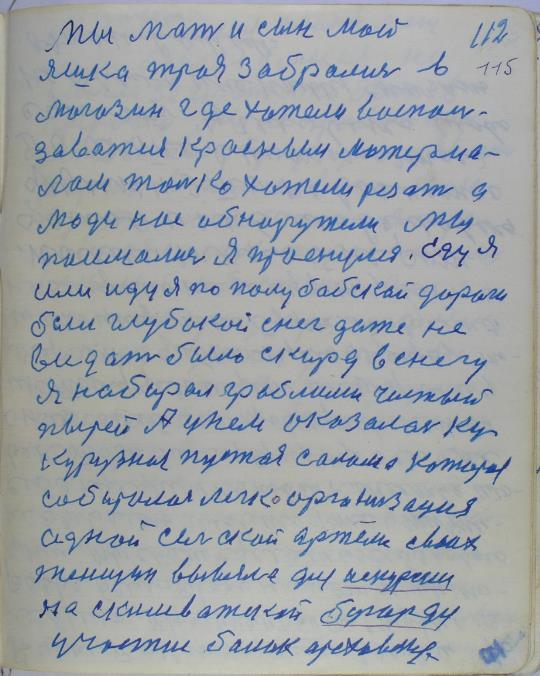 мы мат и сын мой 112
яшка троя забралия в 115
могозин где хотели воспол-
заватия красным мотериа-
лом толко хотели резат а
люди нас обнаружели мы
поималия я проснулся. Еду я
или иду я по полу бабской дороги
был глубокой снег даже не
видат было скирд в снегу
я набирал граблими чистый
пырей А унем оказалас ку-
курузная пустая салома которая
собиралоя легко организация
одной селской артели своих
женщин вывяле для искурсии
на скиповатской бугорду
участие банок